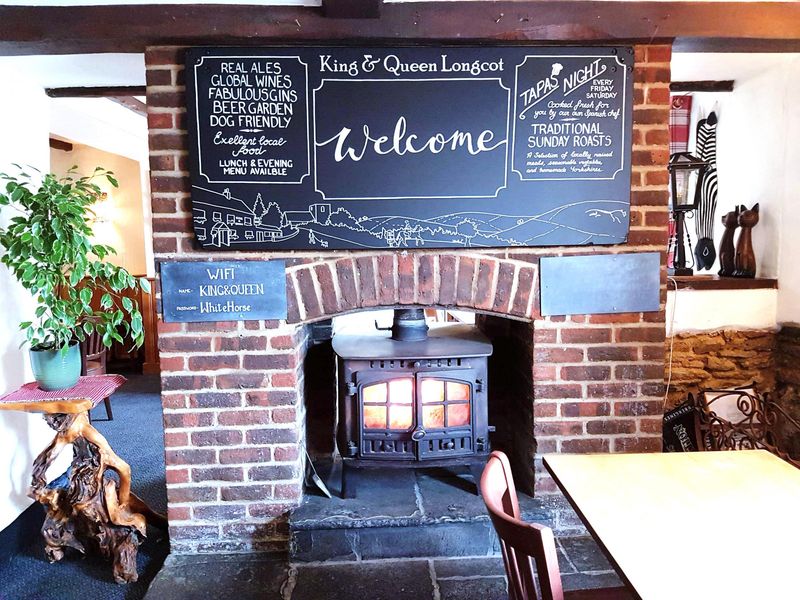 REAL ALES
GLOBAL WINES
FABULOUS GINS
BEER GARDEN
DOG FRIENDLY
Exellent local
food
LUNCH & EVENING
MENU AVAILBLE
King & Queen Longcot
Welcome
TAPAS NIGHT
EVERY
FRIDAY
SATURDAY
Cooked fresh for
you by our own Spanish chef
TRADITIONAL
SUNDAY ROASTS
A Selection of locally raised
meats, seasonable vegtables,
and homemade Yorkshires
WIFI
NAME:- KING&QUEEN
PASSWORD:- WhiteHorse